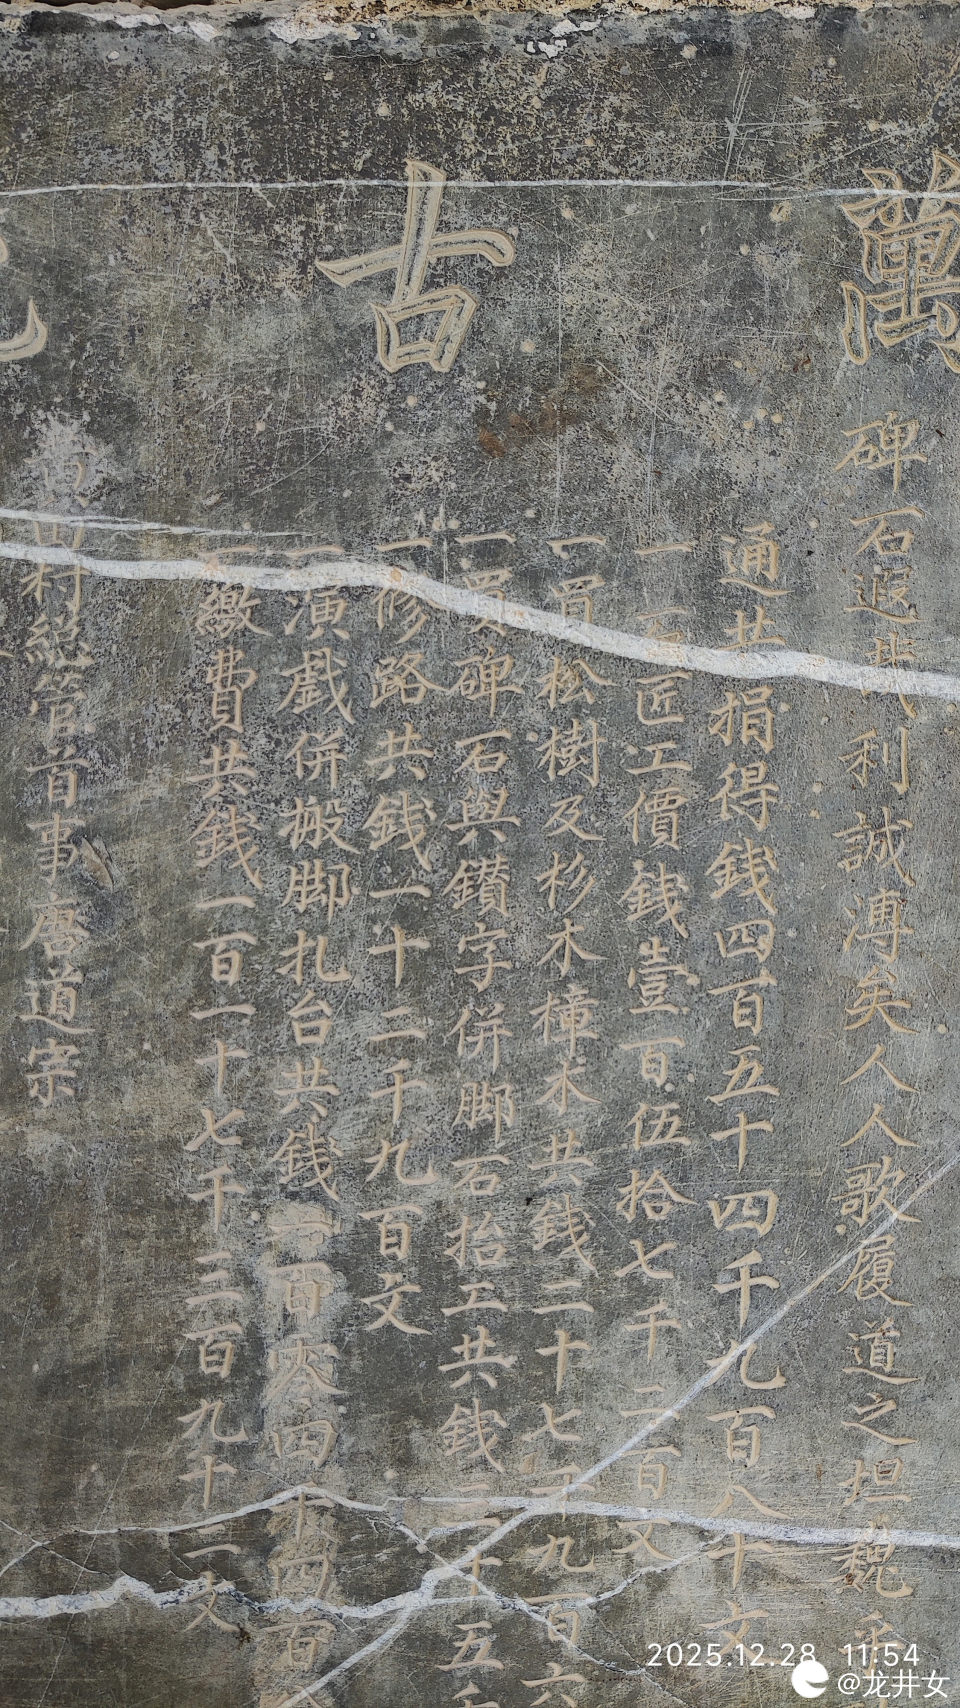 萬古
碑石遐邇利誠溥矣人人歌履道之坦巍乎
通共捐得錢四百五十四千九百八十文
一 匠工價錢壹百伍拾七千二百文
一買松樹及杉木樟木共錢二十七千九百六
一買碑石與鑽字併脚石抬工共錢三十五
一修路共錢一十二千九百文
一演戲併搬脚扎台共錢一百零四千四百
一繳費共錢一百一十七千三百九十二文
村総管首事唐道宗
2025.12.28 11:54
@龙井女